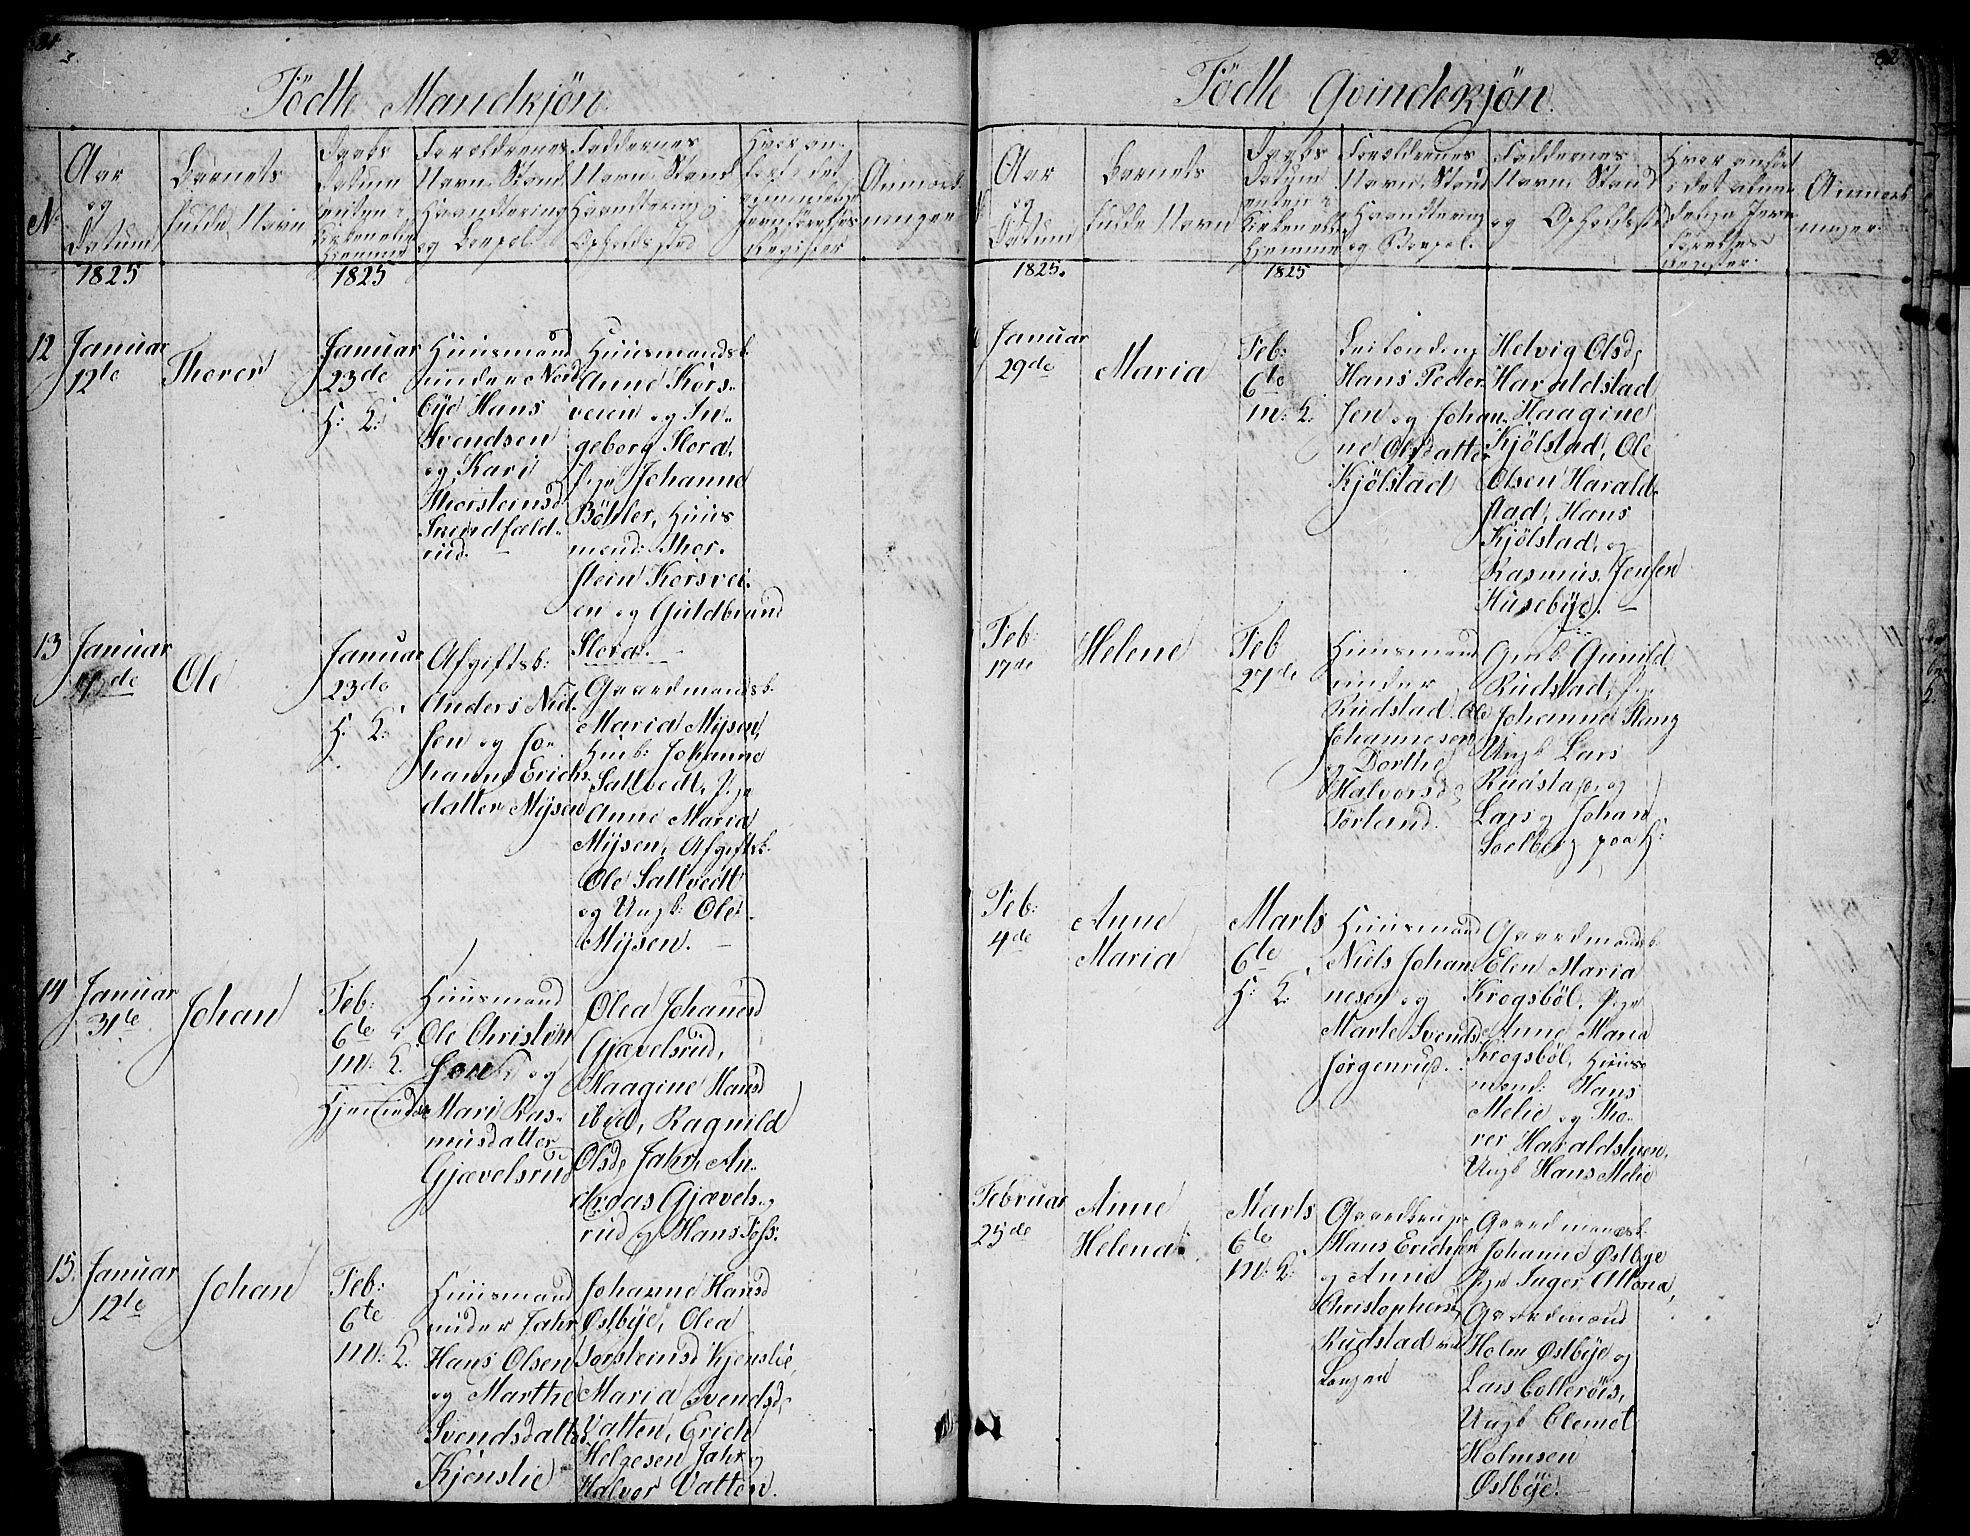 Födte Mandkjön.
Aar
og
Datum
Barnets
fulde Navn
Daabs
Datum
Forældrenes
Navn, Stand
Haandtering
og Boepæl.
Faddernes
Navn, Stand
Haandtering
Opholdssted
Anmærk-
ninger
1825
1825
12
Januar
12te
Thorer
Januar
23de
H: K:
Huusmand
under Nord
bye Hans
Svendsen
og Kari
Thorsteinsd
Huusmandsk.
Anne Kors-
veien og In-
geborg Flora,
Pige Johanne
Böhler, Huus
mænd: Thor-
stein Korsvei-
en og Guldbrand
Flora.
13
Januar
Ole
Januar
23de
H: K:
Afgiftsb:
Anders Niel-
sen og Jo-
hanne Erichs
datter Mysen
Gaardmandsk.
Maria Mysen,
Johanne
Saltvedt, Pige
Anne Maria
Mysen, Afgiftsb.
Ole Saltvedt
og Ungk: Ole
Mysen.
14
Januar
31te
Johan
Feb:
6te
M: K:
Huusmand
Ole Christen
sen, og
Mari Ras-
musdatter
Gjævelsrud
Olea Johannesd
Gjævelsrud,
Haagine Hansd
ibid, Ragnild
Olsd, Jahr, An-
dreas Gjævels-
rud og Hans Foss.
15.
Januar
12te
Johan
Feb:
6te
M: K:
Huusmand
under Jahr
Hans Olsen
og Marthe
Svendsdatter
Kjenslie
Johanne Hansd
Østbye, Olea
Torsteinsd Kjenslie,
Maria Svendsd,
Vatten, Erich
Helgesen Jahr og
Halvor Vatten.
82
Födte Qvindekjön.
Aar
og
Datum
Barnets
fulde Navn
Daabs
Datum
Forældrenes
Navn, Stand
Haandtering
og Boepæl.
Faddernes
Navn, Stand
og Opholdssted
Anmærk-
ninger.
1825.
1825
Januar
29de
Maria
Feb:
6te
M: K:
Leilænding
Hans Peder
sen og Johan-
ne Olsdatter
Kjölstad
Helvig Olsd,
Haraldstad
Haagine
Kjölstad, Ole
Olsen Harald-
stad, Hans
Kjölstad, og
Rasmus Jensen
Husebye.
Feb:
17de
Helene
Feb
27de
Huusmand
under
Rudstad Ole
Johannesen
og Dorthe
Halvorsd
Törlund.
Gunild
Rudstad, Pige
Johanne Stang
Ungk Lars
Rudstad, og
Lars og Johan
Soelberg paa H:
Feb:
4de
Anne
Maria
Marts
6te
H: K:
Huusmand
Niels Johan-
nesen og
Marte Svends
Jörgenrud.
Gaardmandsk.
Elen Maria
Krogsböl, Pige
Anne Maria
Krogsböl, Huus-
mænd: Hans
Melie og Tho-
rer Haraldstuen,
Ungk Hans Melie
Februar
25de
Anne
Helena.
Marts
6te
M: K:
Gaardbruger
Hans Erichsen
og Anne
Christophersd
Rudstad
Gaardmandsk.
Johanne Østbye
Pige Inger Altona,
Gaardmænd
Holm Østbye og
Lars Colleröis,
Ungk Clemet
Holmsen
Østbye.